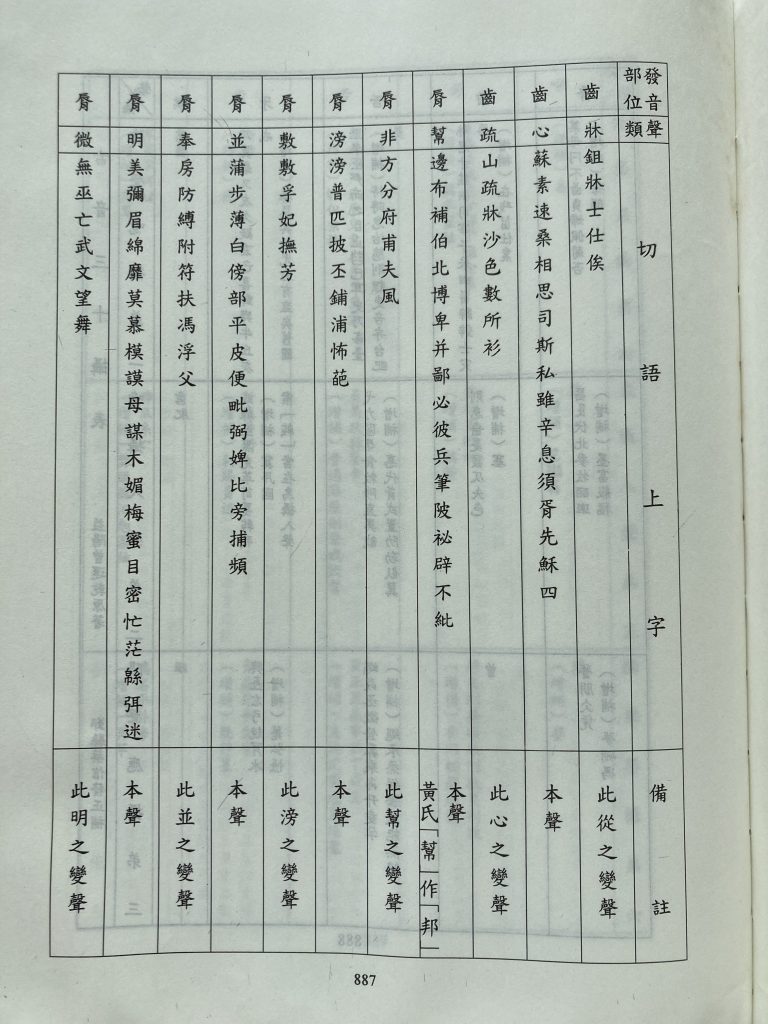 發音部位
聲類
切語上字
備註
齒
牀
鉏牀士仕俟
此從之變聲
齒
心
蘇素速桑相思司斯私雖辛息須胥先穌四
本聲
齒
疏
山疏疎沙色數所衫
此心之變聲
脣
幫
邊布補伯北博卑并鄙必彼兵筆陂祕辟不紕
本聲
黃氏「幫」作「邦」
脣
非
方分府甫夫風
此幫之變聲
脣
滂
滂普匹披丕鋪浦怖葩
本聲
脣
敷
敷孚妃撫芳
此滂之變聲
脣
並
蒲步薄白傍部平皮便毗弼婢比旁捕頻
本聲
脣
奉
房防縛附符扶馮浮父
此並之變聲
脣
明
美彌眉綿靡莫慕模謨母謀木媚梅蜜目密忙茫緜弭迷
本聲
脣
微
無巫亡武文望舞
此明之變聲
887